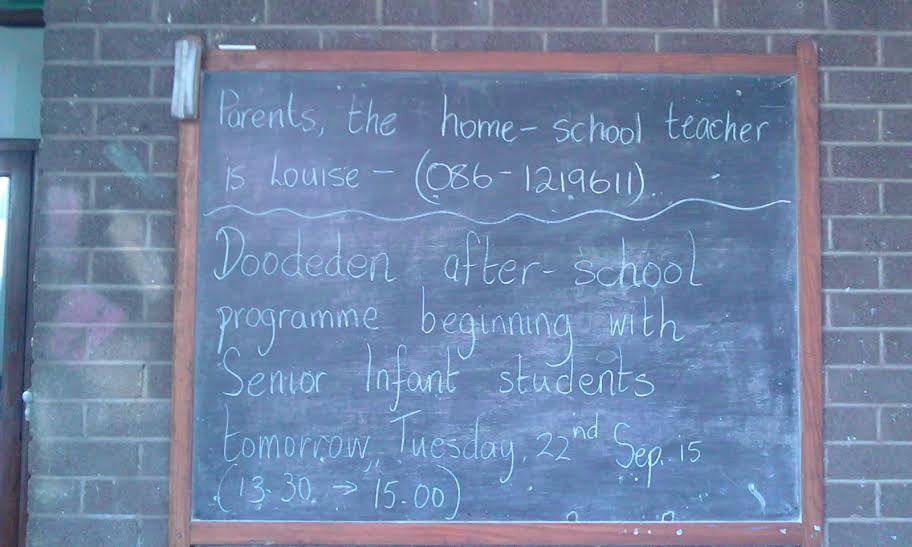 Parents, the home-school teacher
is Louise - (086-1219611).
Doodeden after-school
programme beginning with
Senior Infant students
tomorrow, Tuesday, 22nd Sep. 15
(13.30. → 15.00)